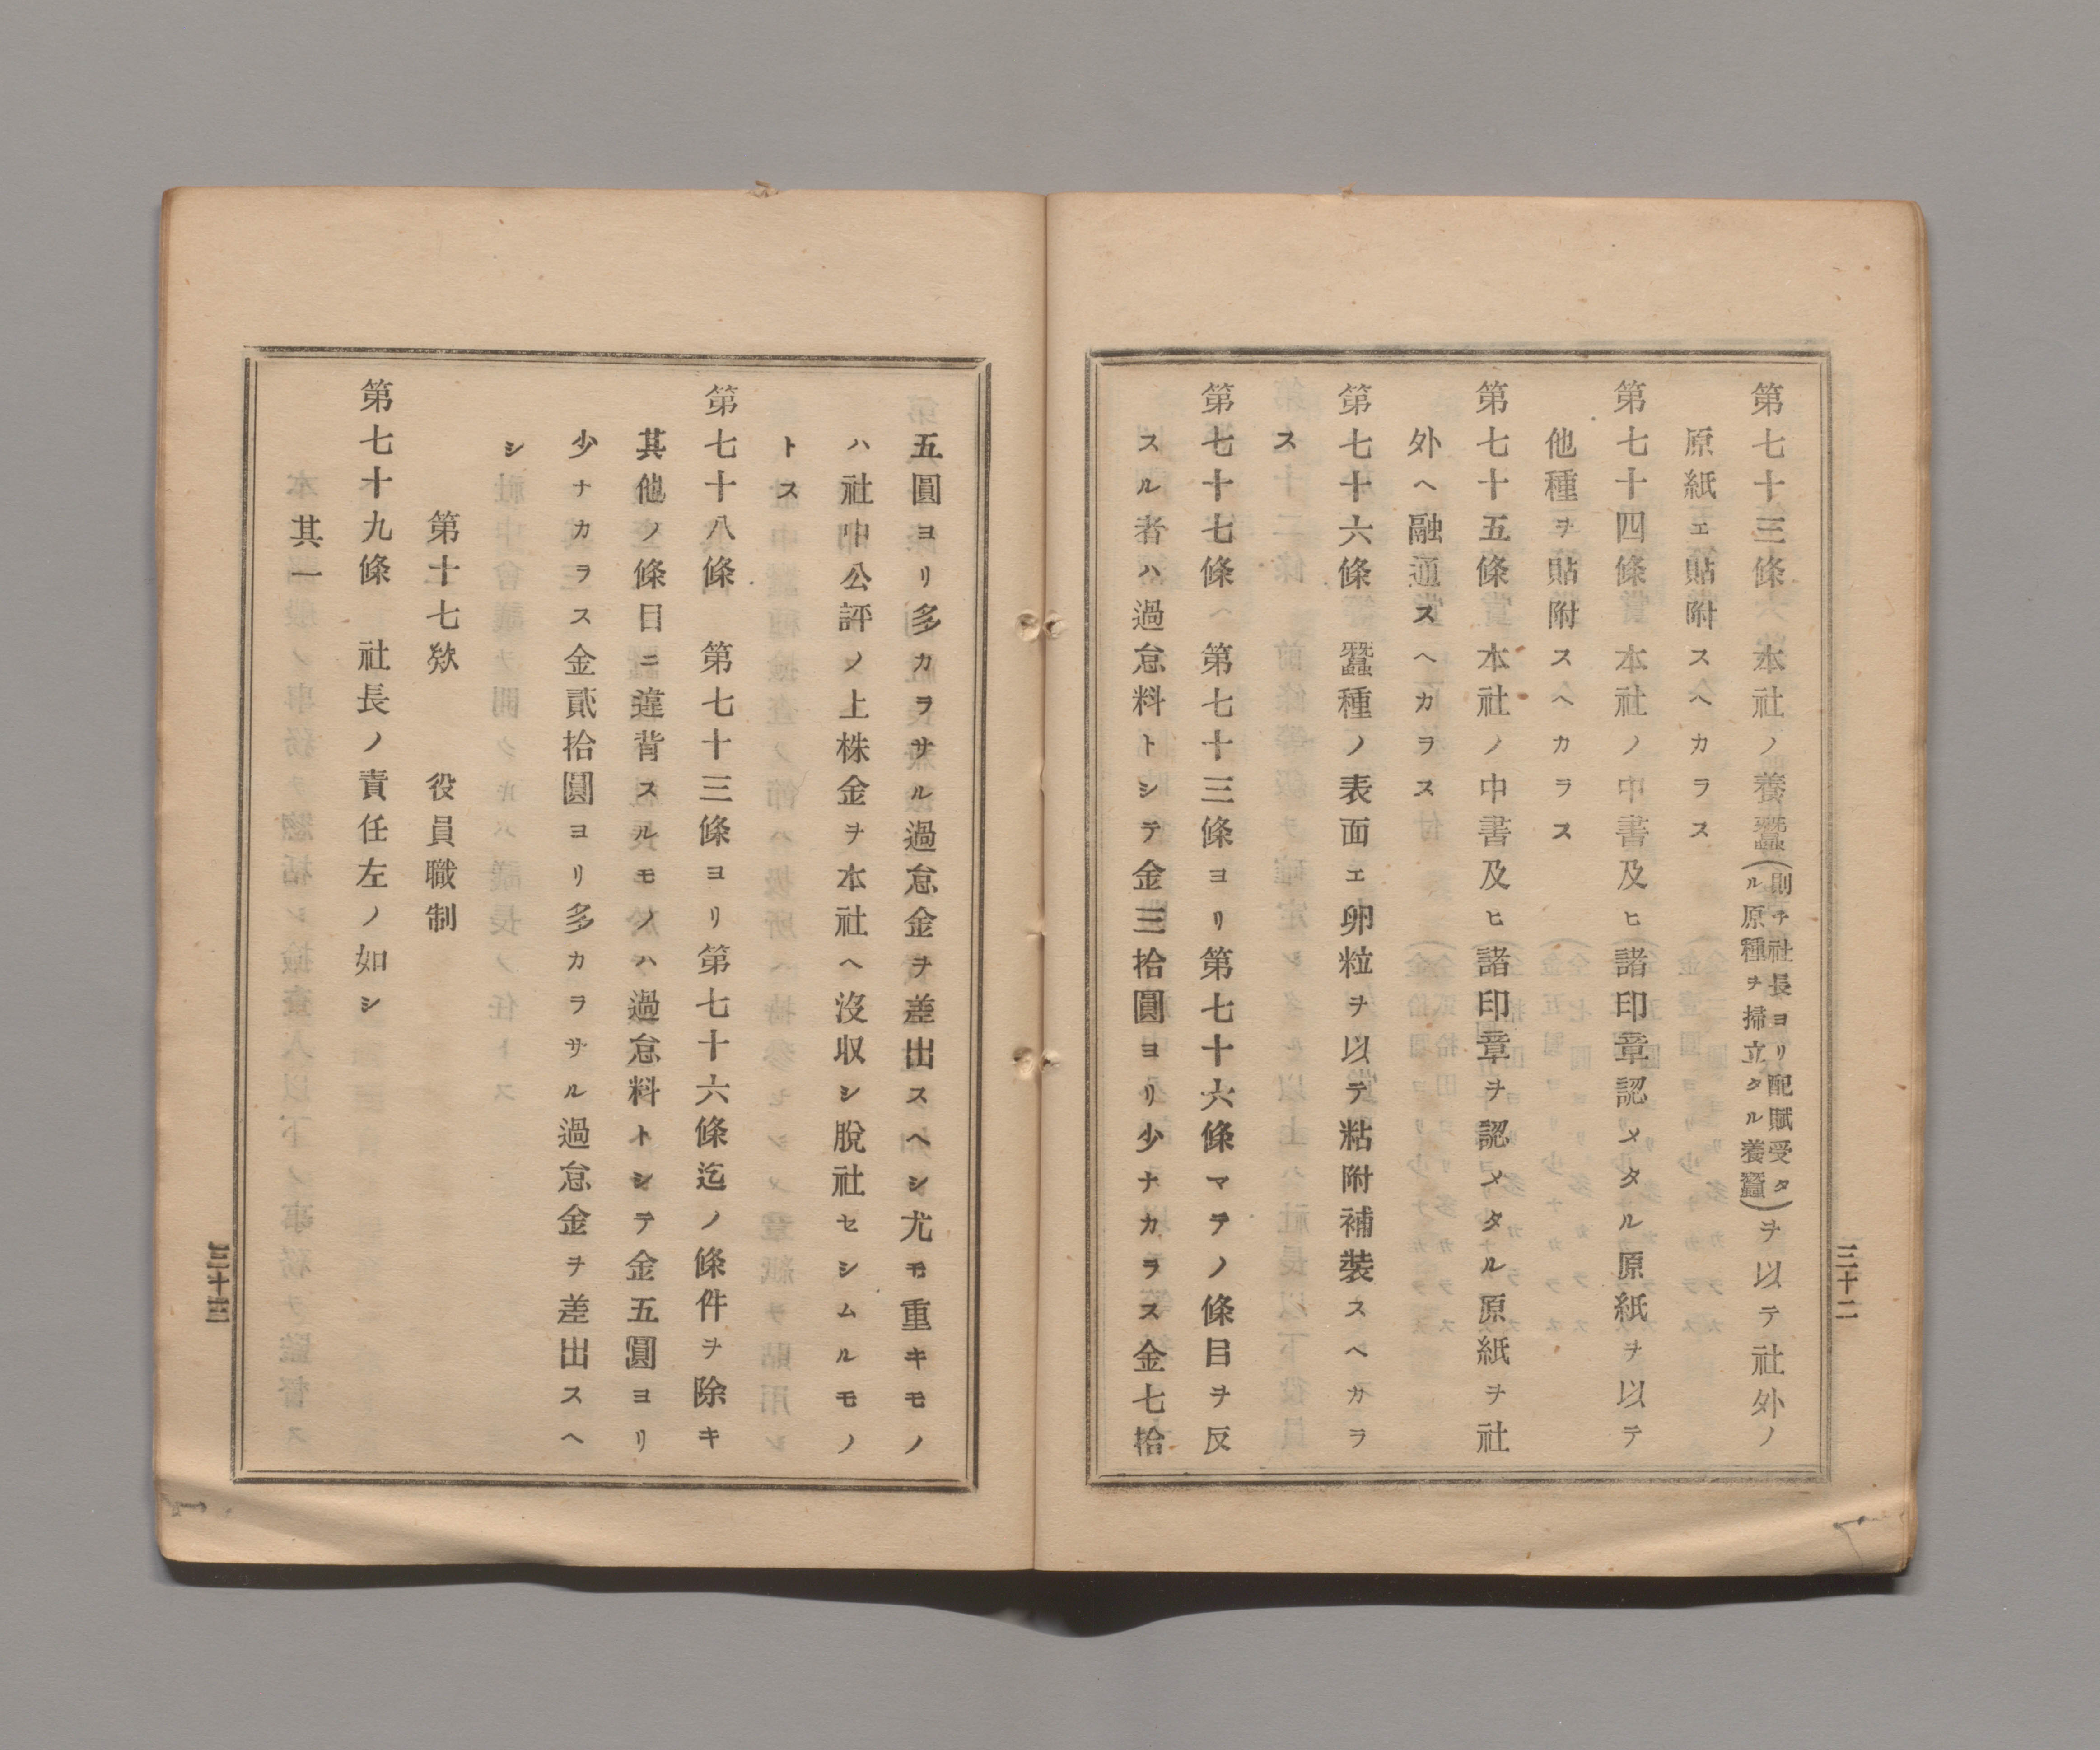 第七十三條　本社ノ養蠶(則チ社長ヨリ配賦受タル原種ヲ掃立タル養蠶)ヲ以テ社外ノ
原紙エ貼附スヘカラス
第七十四條　本社ノ中書及ヒ諸印章認メタル原紙ヲ以テ
他種ヲ貼附スヘカラス
第七十五條　本社ノ中書及ヒ諸印章ヲ認メタル原紙ヲ社
外ヘ融通スヘカラス
第七十六條　蠶種ノ表面エ卵粒ヲ以テ粘附補裝スヘカラ
ス
第七十七條　第七十三條ヨリ第七十六條マテノ條目ヲ反
スル者ハ過怠料トシテ金三拾圓ヨリ少ナカラス金七拾
三十二
五圓ヨリ多カラサル過怠金ヲ差出スヘシ尤モ重キモノ
ハ社中公評ノ上株金ヲ本社ヘ沒収シ脫社セシムルモノ
トス
第七十八條　第七十三條ヨリ第七十六條迄ノ條件ヲ除キ
其他ノ條目ニ違背スルモノハ過怠料トシテ金五圓ヨリ
少ナカラス金貳拾圓ヨリ多カラサル過怠金ヲ差出スヘ
シ
第十七欵　役員職制
第七十九條　社長ノ責任左ノ如シ
其一
三十三